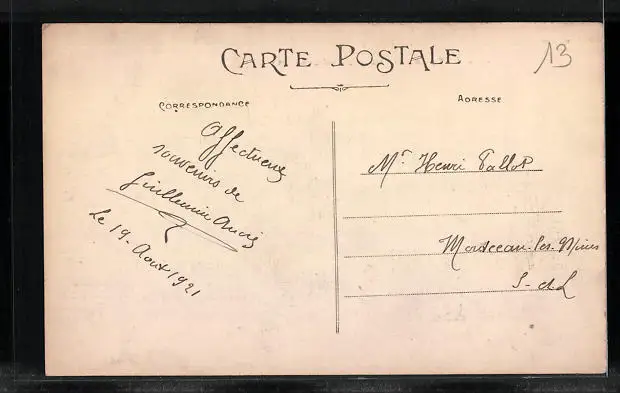 CARTE POSTALE
13
CORRESPONDANCE
ADRESSE
Affectueux
souvenirs de
Guillemin
Le 19 - Aout 1921
Mr Henri Pallot
Montceau-les-Mines
S-et-L